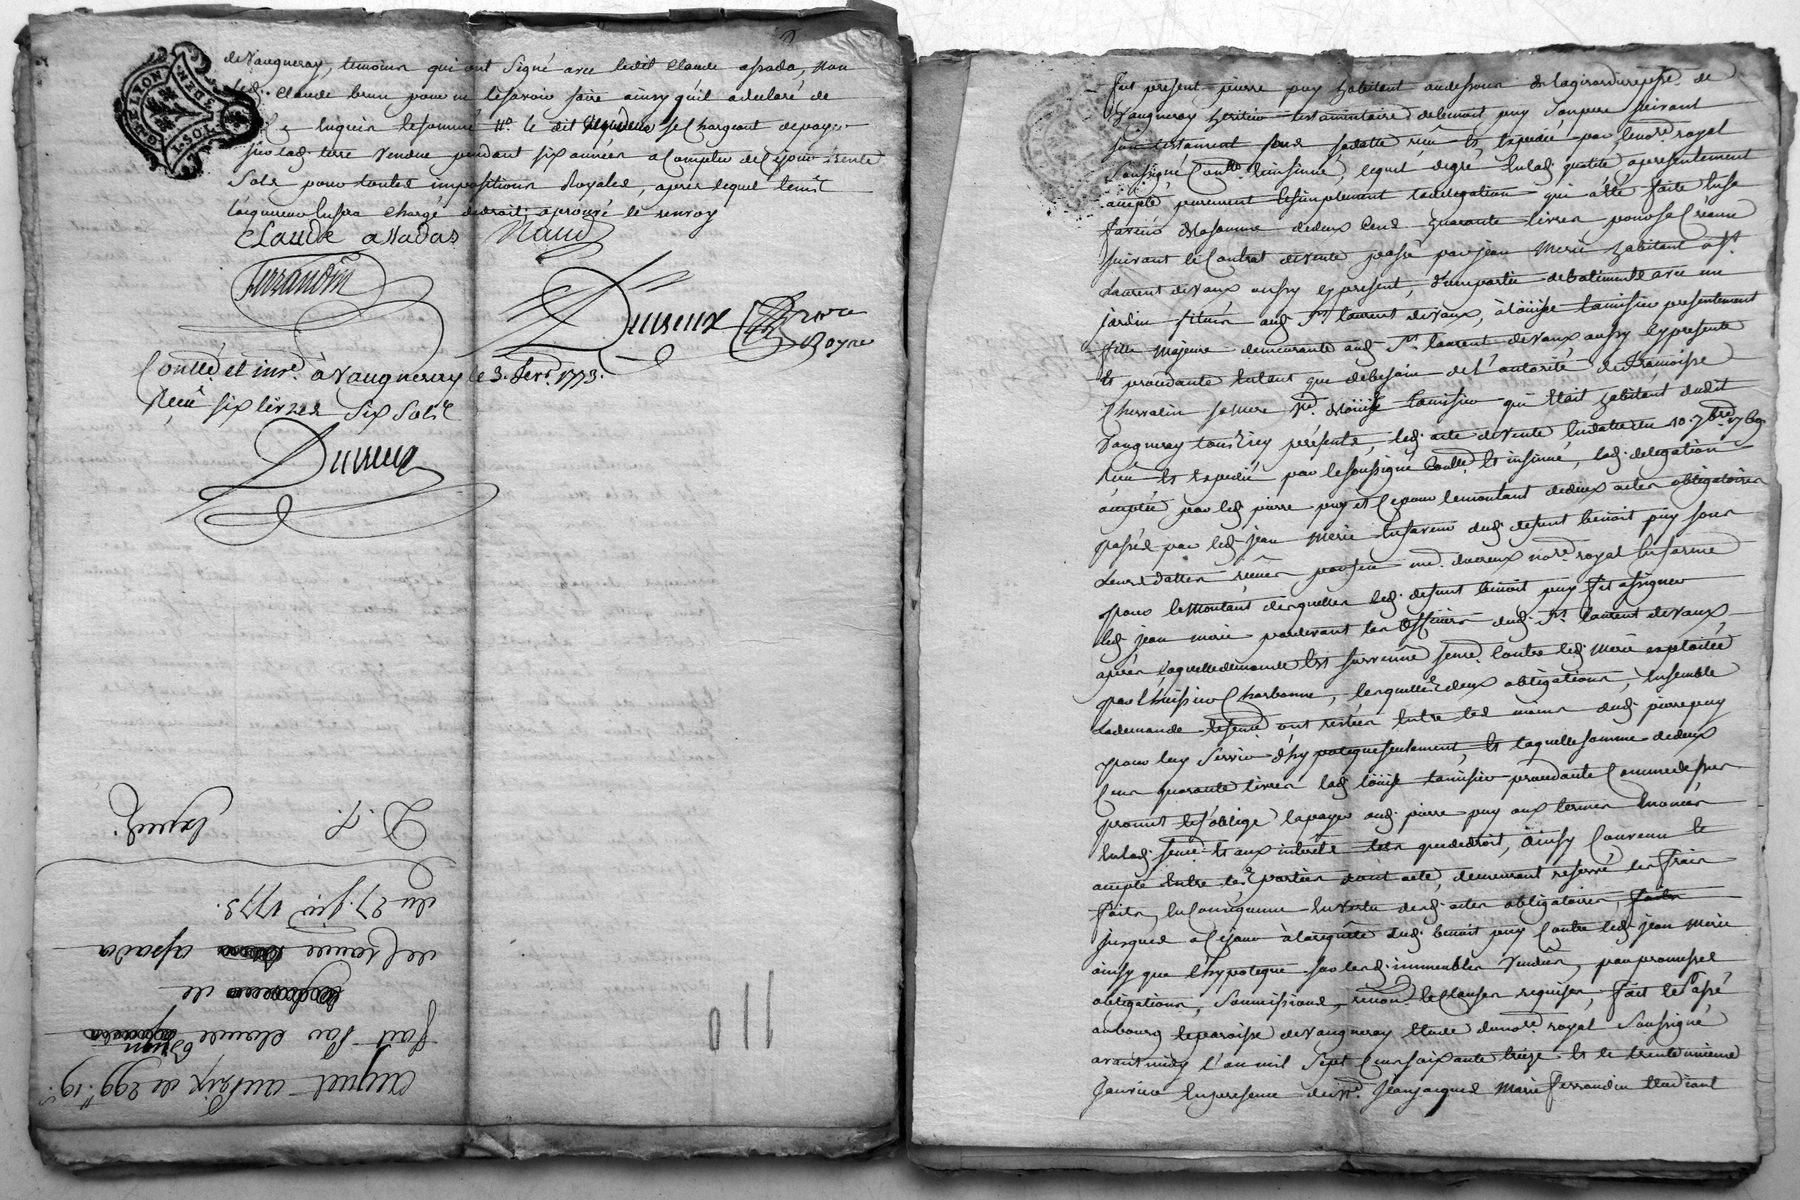 de Vaugneray, temoins qui ont signé avec ledit Claude assada, non
led. Claude brun pour ne le savoir faire ainsy qu'il a declaré de
le dit se Chargeant de payer
sur lad. terre Vendue pendant six années a Compter de Ce jour trente
Sols pour toutes impositions Royales, apres lequel tems
sera Chargé de droit, aprouvé le renvoy
CLaude assadas Naud
ferrandin
Dureux
Royal
Contlé. et insé. à Vaugneray le 3. fevr. 1773.
Reçu six livres six sols
Dureux
D. P. Exped.
du 27. Jvr 1773.
de Claude assada
de
fait Par claude brun
acquet au prix de 299.tt 19.s
LYON
GEN.
1. SOL
fut présent pierre puy habitant de
Vaugneray heritier testamentaire de benoit puy son pere suivant
son testament sous sa datte reçu et expedié par le nore. royal
soussigné Contlé. et insinué, lequel de gré en lad. qualité a presentement
accepté purement et simplement la delegation qui a été faite en sa
faveur de la somme de deux Cens quarante livres pour sa Créance
suivant le Contrat de vente passé par jean Merie habitant a St.
Laurent de Vaux aussy icy present, d'une partie de batiments avec un
jardin situés aud. St. laurent de Vaux, à loüise tamisier presentement
fille majeure demeurante aud. St. laurent de Vaux aussy icy presente
et procedante entant que de besoin de l'autorité de francoise
sa mere Ve. de tamisier qui était habitant dudit
Vaugneray tous icy presents, led. acte de vente en datte du 10. 7bre. 1769
reçu et expedié par le soussigné Contlé. et insinué, lad. delegation
acceptée par led. pierre puy et Ce pour le montant de deux actes obligatoires
passés par led. jean Merie en faveur dud. defunt benoit puy sous
leurs dattes reçues par feu me. ducreux nore. royal en forme
pour le montant desquelles led. defunt benoit puy fit assigner
led. jean merie pardevant les officiers dud. St. laurent de Vaux,
après laquelle demande est survenüe sence. Contre led. Merie exploitée
par l'huissier Charbonne, lesquelles deux obligations, ensemble
la demande et sence. ont restées entre les mains dud. pierre puy
pour luy servir d'hypoteque seulement, et laquelle somme de deux
Cens quarante livres lad. loüise tamisier procedante Comme dessus
promet et s'oblige la payer aud. pierre puy aux termes énoncés
en lad. vente et aux interets tels que de droit, ainsy Convenu et
accepté entre les parties dont acte, demeurant reservé les frais
faits en Conséquence en vertu desd. actes obligatoires,
jusques a Ce jour à la requête dud. benoit puy Contre led. jean Merie
ainsy que l'hypoteque sur lesd. immeubles Vendus, par promesses
obligations, soumissions, renon. et Clauses requises, fait et Passé
au bourg et paroisse de Vaugneray étude du nore. royal soussigné
avant midy l'an mil sept Cens soixante treize et le trente unieme
janvier en presence de Mr. jean jacques Marie ferrandin étudiant